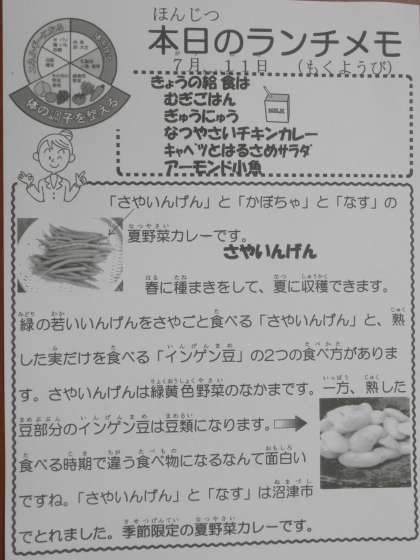 ほんじつ
本日のランチメモ
7月 11日 (もくようび)
きょうの給食は
むぎごはん
ぎゅうにゅう
なつやさいチキンカレー
キャベツとはるさめサラダ
アーモンド小魚
MILK
体の調子を整える
「さやいんげん」と「かぼちゃ」と「なす」の
夏野菜カレーです。
さやいんげん
春に種まきをして、夏に収穫できます。
緑の若いいんげんをさやごと食べる「さやいんげん」と、熟
した実だけを食べる「インゲン豆」の2つの食べ方がありま
す。さやいんげんは緑黄色野菜のなかまです。一方、熟した
豆部分のインゲン豆は豆類になります。
食べる時期で違う食べ物になるなんて面白い
ですね。「さやいんげん」と「なす」は沼津市
でとれました。季節限定の夏野菜カレーです。